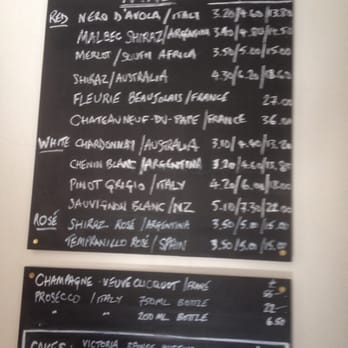 RED NERO D'AVOLA / ITALY 3.20/4.60/13.80
MALBEC SHIRAZ/ARGENTINA
MERLOT / SOUTH AFRICA 3.50/5.00/15.00
SHIRAZ/AUSTRALIA 4.30/6.20/18.60
FLEURIE BEAUJOLAIS/FRANCE 27.00
CHATEAUNEUF-DU-PAPE/FRANCE 36.00
WHITE CHARDONNAY/AUSTRALIA
CHENIN BLANC/ARGENTINA 3.20/4.60/13.80
PINOT GRIGIO/ITALY 4.20/6.00/18.00
SAUVIGNON BLANC/NZ 5.10/7.30/22.00
ROSÉ SHIRAZ ROSÉ/ARGENTINA 3.50/5.00/15.00
TEMPRANILLO ROSÉ/SPAIN 3.50/5.00/15.00
£
CHAMPAGNE - VEUVE CLICQUOT/ 55-
PROSECCO / ITALY 750ML BOTTLE 22-
" " 200ML BOTTLE 6.50
CAKES: VICTORIA